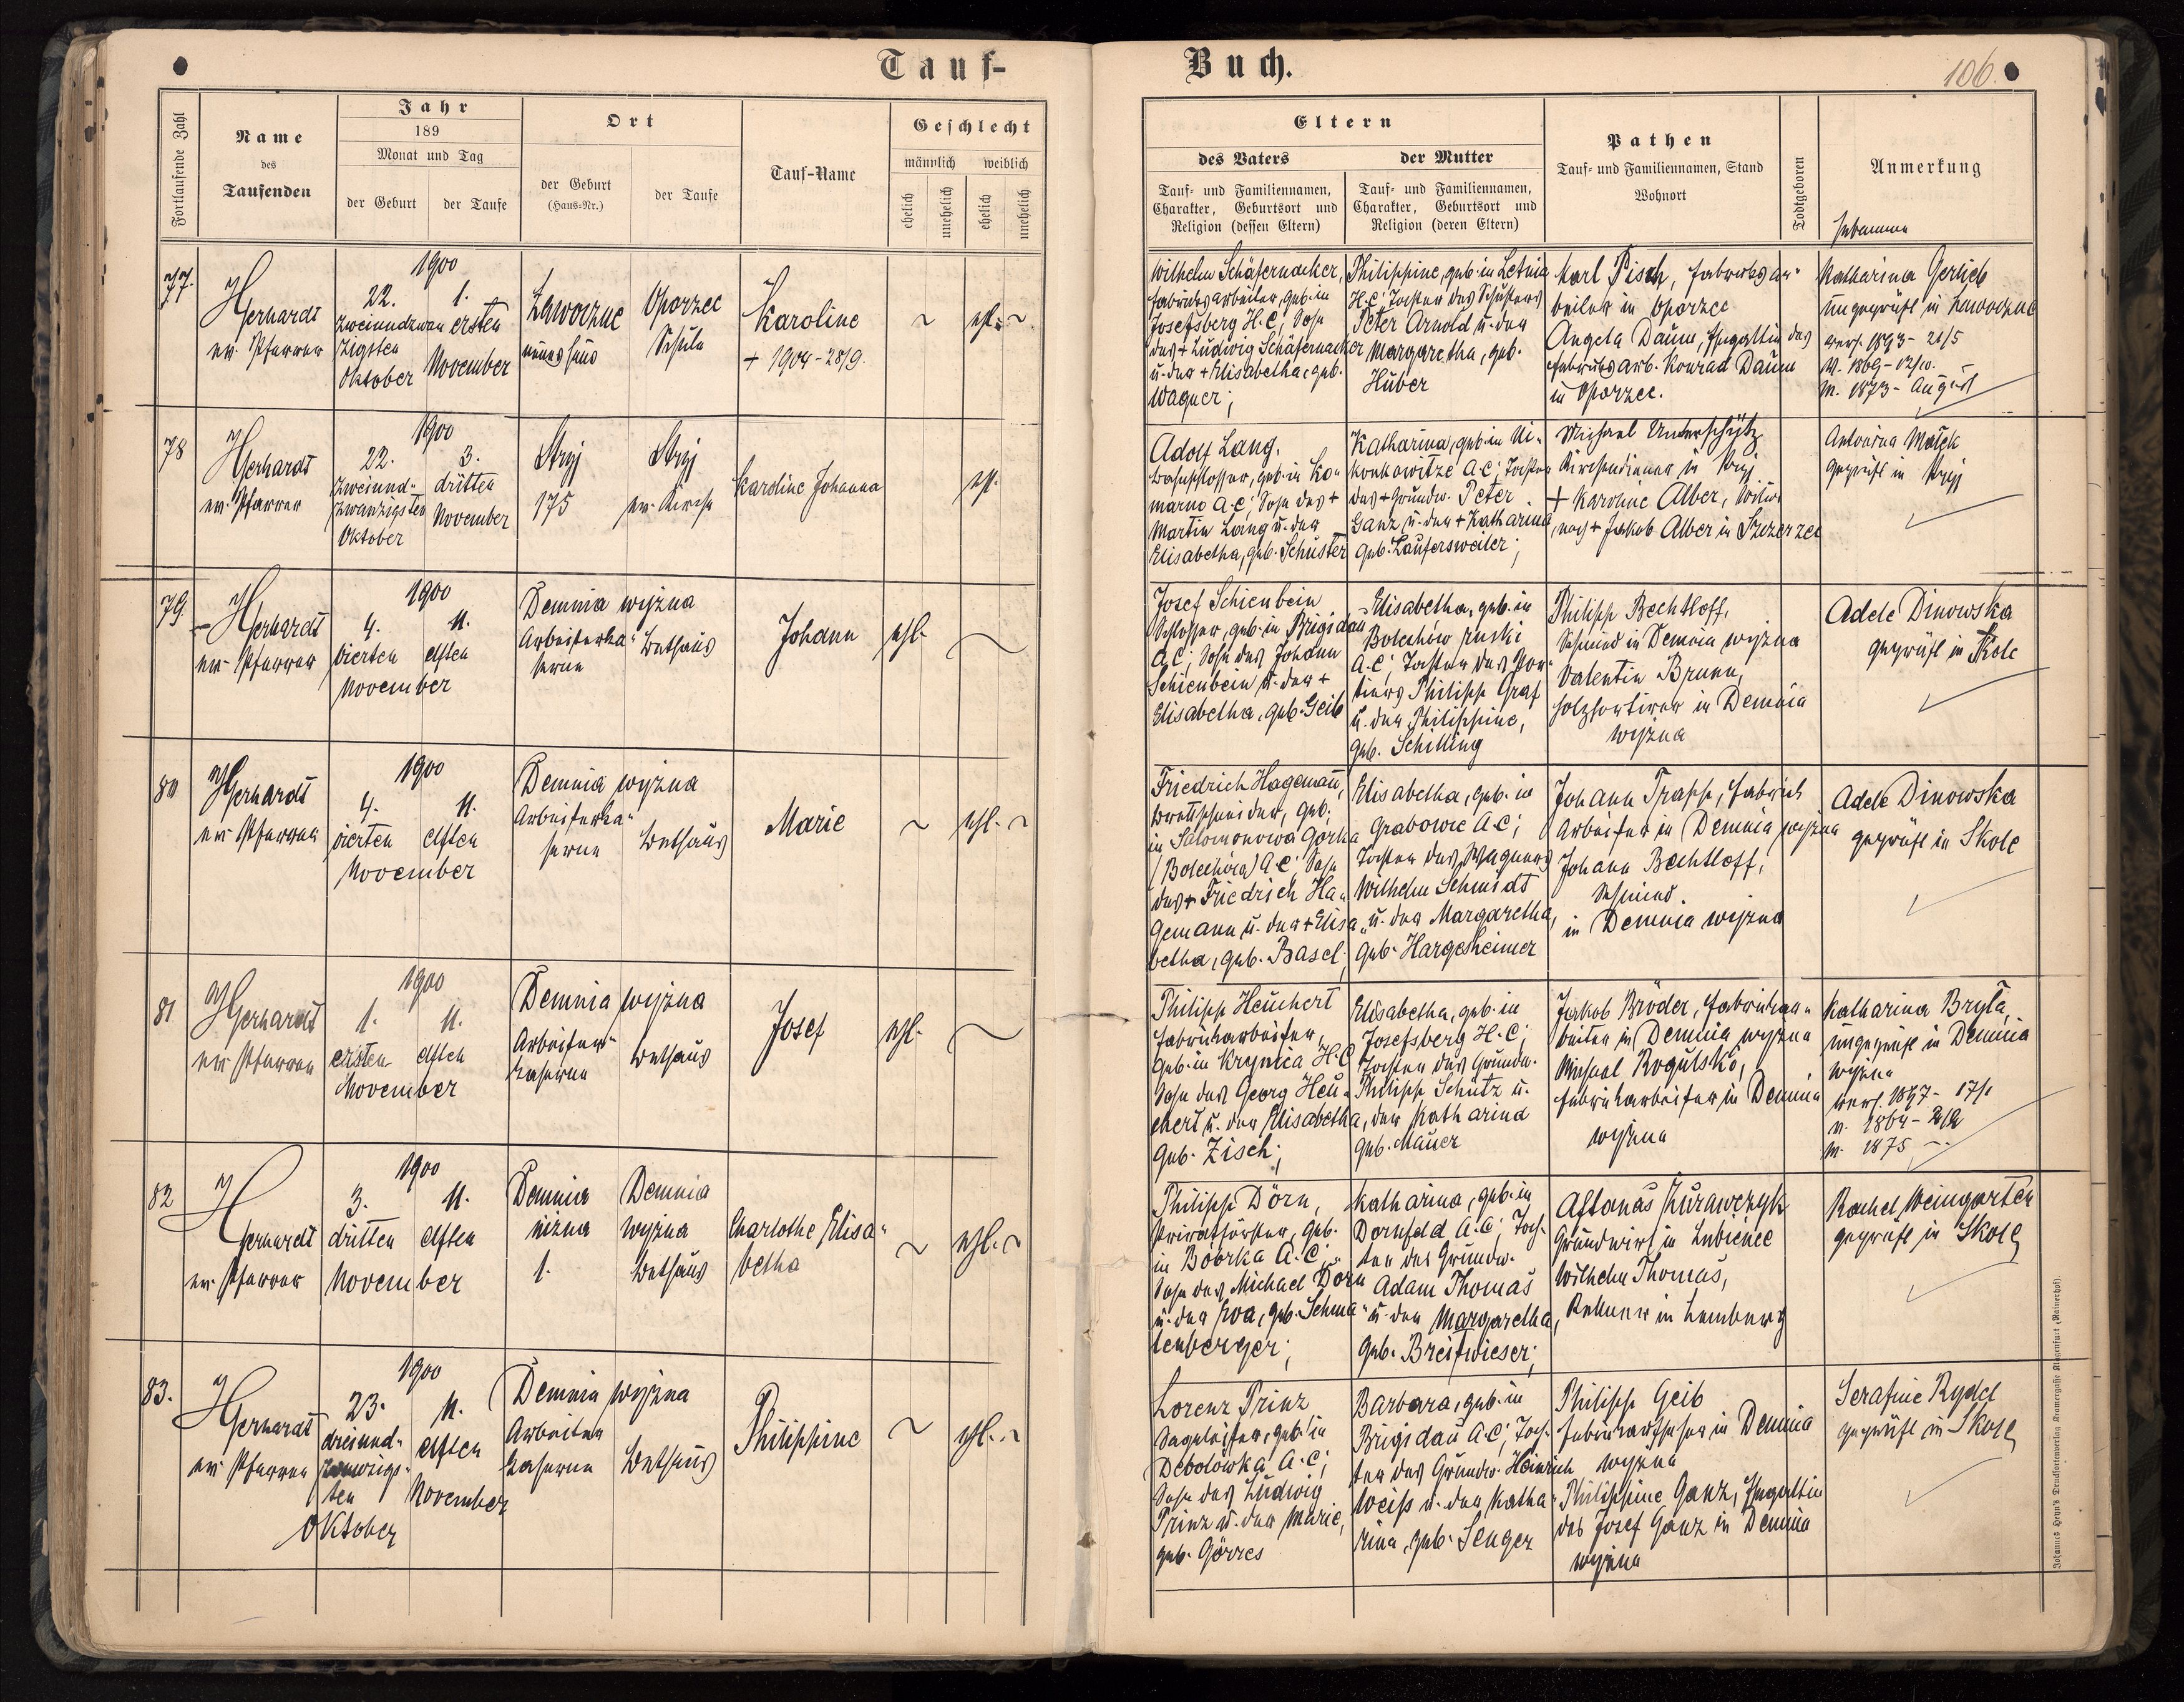 Tauf-
Buch.
106.
Fortlaufende Zahl
Name
des
Taufenden
Jahr
189
Monat und Tag
der Geburt
der Taufe
Ort
der Geburt
(Haus-Nr.)
der Taufe
Tauf-Name
Geschlecht
männlich
weiblich
ehelich
unehelich
ehelich
unehelich
Eltern
des Vaters
Tauf- und Familiennamen,
Charakter, Geburtsort und
Religion (dessen Eltern)
der Mutter
Tauf- und Familiennamen,
Charakter, Geburtsort und
Religion (deren Eltern)
Pathen
Tauf- und Familiennamen, Stand
Wohnort
Todtgeboren
Anmerkung
Hebamme
77.
Gerhardt
ev. Pfarrer
1900
22.
zweiundzwan
zigsten
Oktober
1.
ersten
November
Ławoczne
neues Haus
Oporzec
Schule
Karoline
+ 1904-28/9.
ehl.
Wilhelm Schäfernacker,
Fabriksarbeiter, geb. in
Josefsberg H.C; Sohn
des + Ludwig Schäfernacker
u. der + Elisabetha, geb.
Wagner;
Philippine, geb. in Letnia
H.C; Tochter des Schusters
Peter Arnold u. der
Margaretha, geb.
Huber
Karl Pisch, Fabriksar-
beiter in Oporzec
Angela Daum, Ehegattin des
Fabriksarb. Konrad Daum
in Oporzec.
Katharina Gerlieb
ungeprüft in Ławoczne
verh. 1893-21/5
v. 1869-12/10.
m. 1873-August
78
Gerhardt
ev. Pfarrer
1900
22.
zweiund-
zwanzigsten
Oktober
3.
dritten
November
Stryj
175
Stryj
ev. Kirche
Karoline Johanna
ehl.
Adolf Lang,
Bahnschlosser, geb. in Ko-
marno A.C; Sohn des +
Martin Lang u. der
Elisabetha, geb. Schuster
Katharina, geb. in Ui-
konkowitze A.C; Tochter
des + Grundw. Peter
Ganz u. der + Katharina,
geb. Laufersweiler;
Michael Unterschütz
Kirchendiener in Stryj
+ Karoline Alber, Witwe
nach + Jakob Alber in Szczerzec
Antonina Małek
geprüft in Stryj
79
Gerhardt
ev. Pfarrer
1900
4.
vierten
11.
elften
November
Demnia wyżna
Arbeiterka-
serne
Bethaus
Johann
ehl.
Josef Schienbein
Schlosser, geb. in Brigidau
A.C; Sohn des Johann
Schienbein u. der +
Elisabetha, geb. Geib
Elisabetha, geb. in
Bolechów ruski
A.C; Tochter des Por-
tiers Philipp Graf
u. der Philippine,
geb. Schilling
Philipp Bechtloff,
Schmied in Demnia wyżna
Valentin Brunn,
Holzsortirer in Demnia
wyżna
Adele Dinowska
geprüft in Skole
80
Gerhardt
ev. Pfarrer
1900
4.
vierten
11.
elften
November
Demnia wyżna
Arbeiterka-
serne
Bethaus
Marie
ehl.
Friedrich Hagemann,
Brettschneider, geb.
in Salomonowa Górka
(Bolechów) A.C; Sohn
des + Friedrich Ha-
gemann u. der + Elisa-
betha, geb. Basel;
Elisabetha, geb. in
Grabowic A.C;
Tochter des Wagners
Wilhelm Schmidt
u. der Margaretha,
geb. Hargesheimer
Johann Trapp, Fabrick
Arbeiter in Demnia wyżna
Johann Bechtloff,
Schmied
in Demnia wyżna
Adele Dinowska
geprüft in Skole
81
Gerhardt
ev. Pfarrer
1900
1.
ersten
11.
elften
November
Demnia wyżna
Arbeiter-
kaserne
Bethaus
Josef
ehl.
Philipp Heuchert
Fabrikarbeiter,
geb. in Krynica H.C
Sohn des Georg Heu-
chert u. der Elisabetha,
geb. Zisch;
Elisabetha, geb. in
Josefsberg H.C;
Tochter des Grundw.
Philipp Schütz u.
der Katharina
geb. Mauer
Jakob Bröder, Fabrikar-
beiter in Demnia wyżna
Michael Rogulski,
Fabrikarbeiter in Demnia
wyżna
Katharina Bryła,
ungeprüft in Demnia
wyżna
verh. 1897-17/1
v. 1864-
m. 1875
82
Gerhardt
ev. Pfarrer
1900
3.
dritten
11.
elften
November
Demnia
niżna
1.
Demnia
wyżna
Bethaus
Charlothe Elisa-
betha
ehl.
Philipp Dörn,
Privatförster, geb.
in Bobrka A.C;
Sohn des Michael Dörn
u. der Eva, geb. Schmal-
tenberger;
Katharina, geb. in
Dornfeld A.C; Toch-
ter des Grundw.
Adam Thomas
u. der Margaretha,
geb. Breitwieser;
Aftanas Kurawczyk
Grundwirt in Lubience
Wilhelm Thomas,
Kellner in Lemberg
Rachel Weingarten
geprüft in Skole
83.
Gerhardt
ev. Pfarrer
1900
23.
dreiund-
zwanzigs-
ten
Oktober
11.
elften
November
Demnia wyżna
Arbeiter
kaserne
Bethaus
Philippine
ehl.
Lorenz Prinz
geb. in
Debolówka A.C;
Sohn des Ludwig
Prinz u. der Marie,
geb. Görres
Barbara, geb. in
Brigidau A.C; Toch-
ter des Grundw. Heinrich
Weiss u. der Katha-
rina, geb. Senger
Philipp Geib
Fabrikaufseher in Demnia
wyżna
Philippine Ganz, Ehegattin
des Josef Ganz in Demnia
wyżna
Serafine Rydel
geprüft in Skole
Johannes Heyn's Drucksortenverlag, Kramergasse Klagenfurt (Rainerhof).